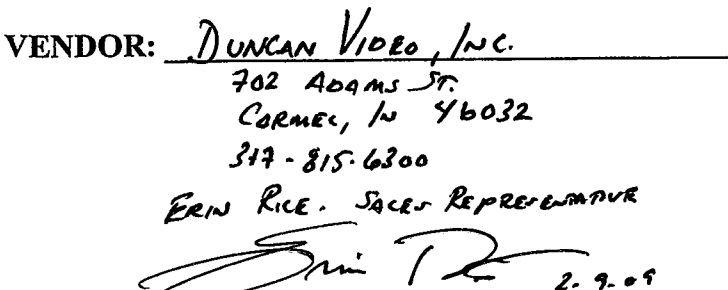 VENDOR: DUNCAN VIDEO, INC.
702 ADAMS ST.
CARMEL, IN 46032
317-815-6300
ERIN RICE. SALES REPRESENTATIVE
Erin R 2.9.09